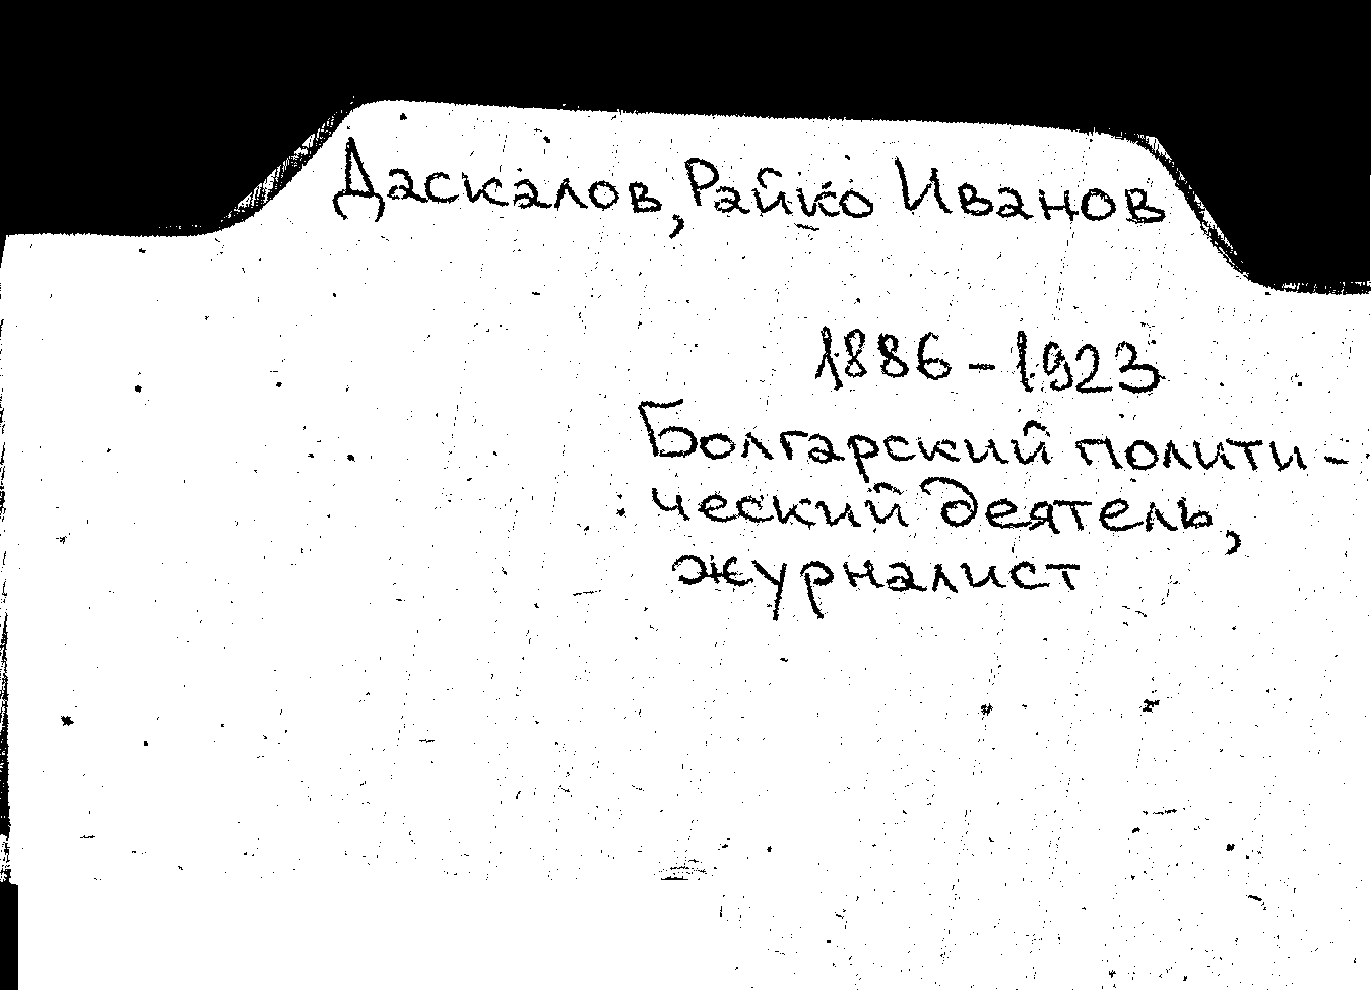 Даскалов, Райко Иванов
1886 – 1923
Болгарский полити-
ческий деятель,
журналист